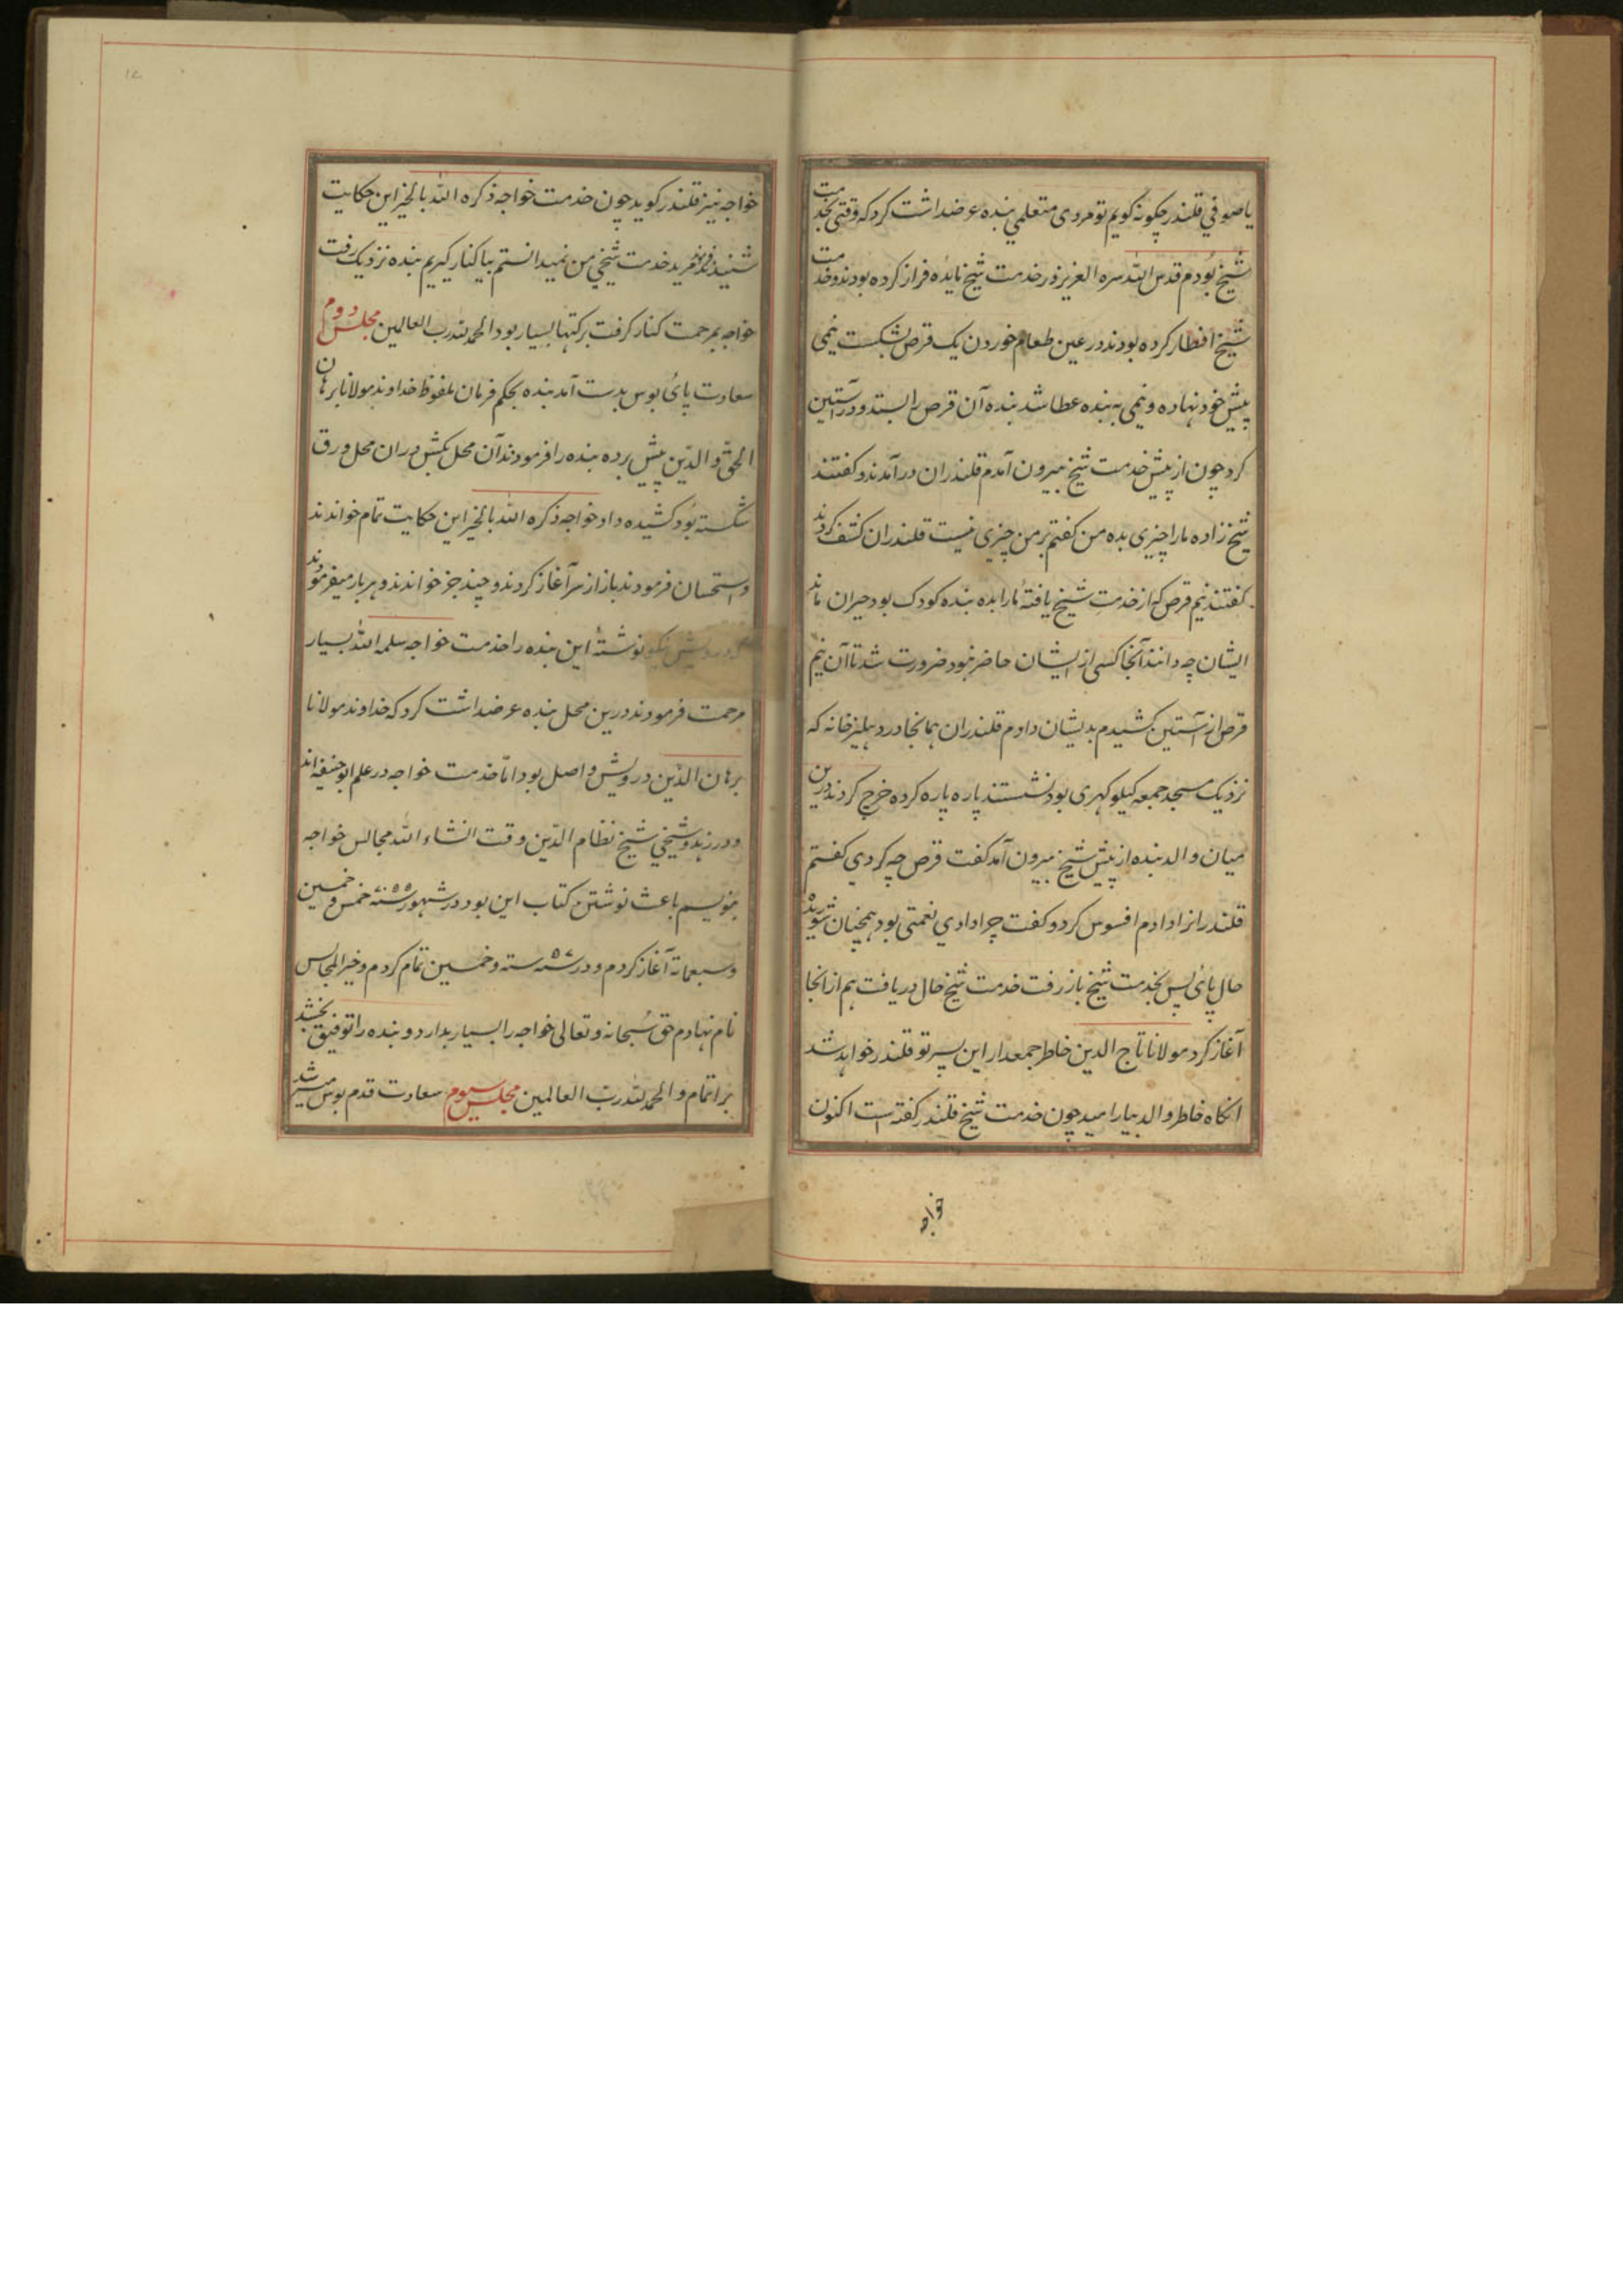 یا صوفي قلندر چکونه کویم تو مردی متعلمي بنده عرضداشت کرد که وقتی بخدمت
شیخ بودم قدس الله سره العزیز در خدمت شیخ مایده فراز کرده بودند و خدمت
شیخ افطار کرده بودند در عین طعام خوردن یک قرص بشکست نیمی
پیش خود نهاده و نیمی به بنده عطا شد بنده آن قرص را بستد و در آستین
کرد چون از پیش خدمت شیخ بیرون آمدم قلندران در آمدند و کفتند
شیخ زاده ما را چیزی بده من کفتم بر من چیزی نیست قلندران کشف کردند
کفتند نیم قرص که از خدمت شیخ یافتهٔ ما را بده بنده کودک بود حیران ماند
ایشان چه دانند آنجا کسی از ایشان حاضر نبود ضرورت شد تا آن نیم
قرص از آستین کشیدم بدیشان دادم قلندران همانجا در دهلیز خانه که
نزدیک مسجد جمعه کیلوکهری بود نشستند پاره پاره کرده خرج کردند درین
میان والد بنده از پیش شیخ بیرون آمد کفت قرص چه کردي کفتم
قلندرانرا دادم افسوس کرد و کفت چرا دادي نعمتی بود همچنان شوریده
حال پای پس بخدمت شیخ باز رفت خدمت شیخ حال دریافت هم از انجا
آغاز کرد مولانا تاج الدین خاطر جمعدار این پسر تو قلندر خواهد شد
انکاه خاطر والد بیارامید چون خدمت شیخ قلندر کفته است اکنون
خواجه
خواجه نیز قلندر کوید چون خدمت خواجه ذکره الله بالخیر این حکایت
شنید فرمود مرید خدمت شیخي من نمیدانستم بیا کنار کیریم بنده نزدیک رفت
خواجه بمرحمت کنار کرفت برکتها بسیار بود الحمد لله رب العالمین مجلس دوم
سعادت پائ بوس بدست آمد بنده بحکم فرمان ملفوظ خداوند مولانا برهان
الحق والدین پیش برده بنده را فرمودند آن محل بکش دران محل ورق
شکسته بود کشیده داد خواجه ذکره الله بالخیر این حکایت تمام خواندند
و استحسان فرمودند باز از سر آغاز کردند و چند جز خواندند و هر بار میفرمودند
درویش نیکو نوشتهٔ این بنده را خدمت خواجه سلمه الله بسیار
مرحمت فرمودند درین محل بنده عرضداشت کرد که خداوند مولانا
برهان الدین درویش واصل بود اما خدمت خواجه در علم ابو حنیفه اند
و در زهد و شیخي شیخ نظام الدین وقت انشاء الله مجالس خواجه
بنویسم باعث نوشتن کتاب این بود در شهور سنه ۷۵۵ خمس و خمسین
و سبعماته آغاز کردم و در سنه ۵۷ سته و خمسین تمام کردم و خیر المجالس
نام نهادم حق سبحانه و تعالی خواجه را بسیار بدارد و بنده را توفیق بخشد
بر اتمام والحمد لله رب العالمین مجلس سیوم سعادت قدم بوس میسر شد